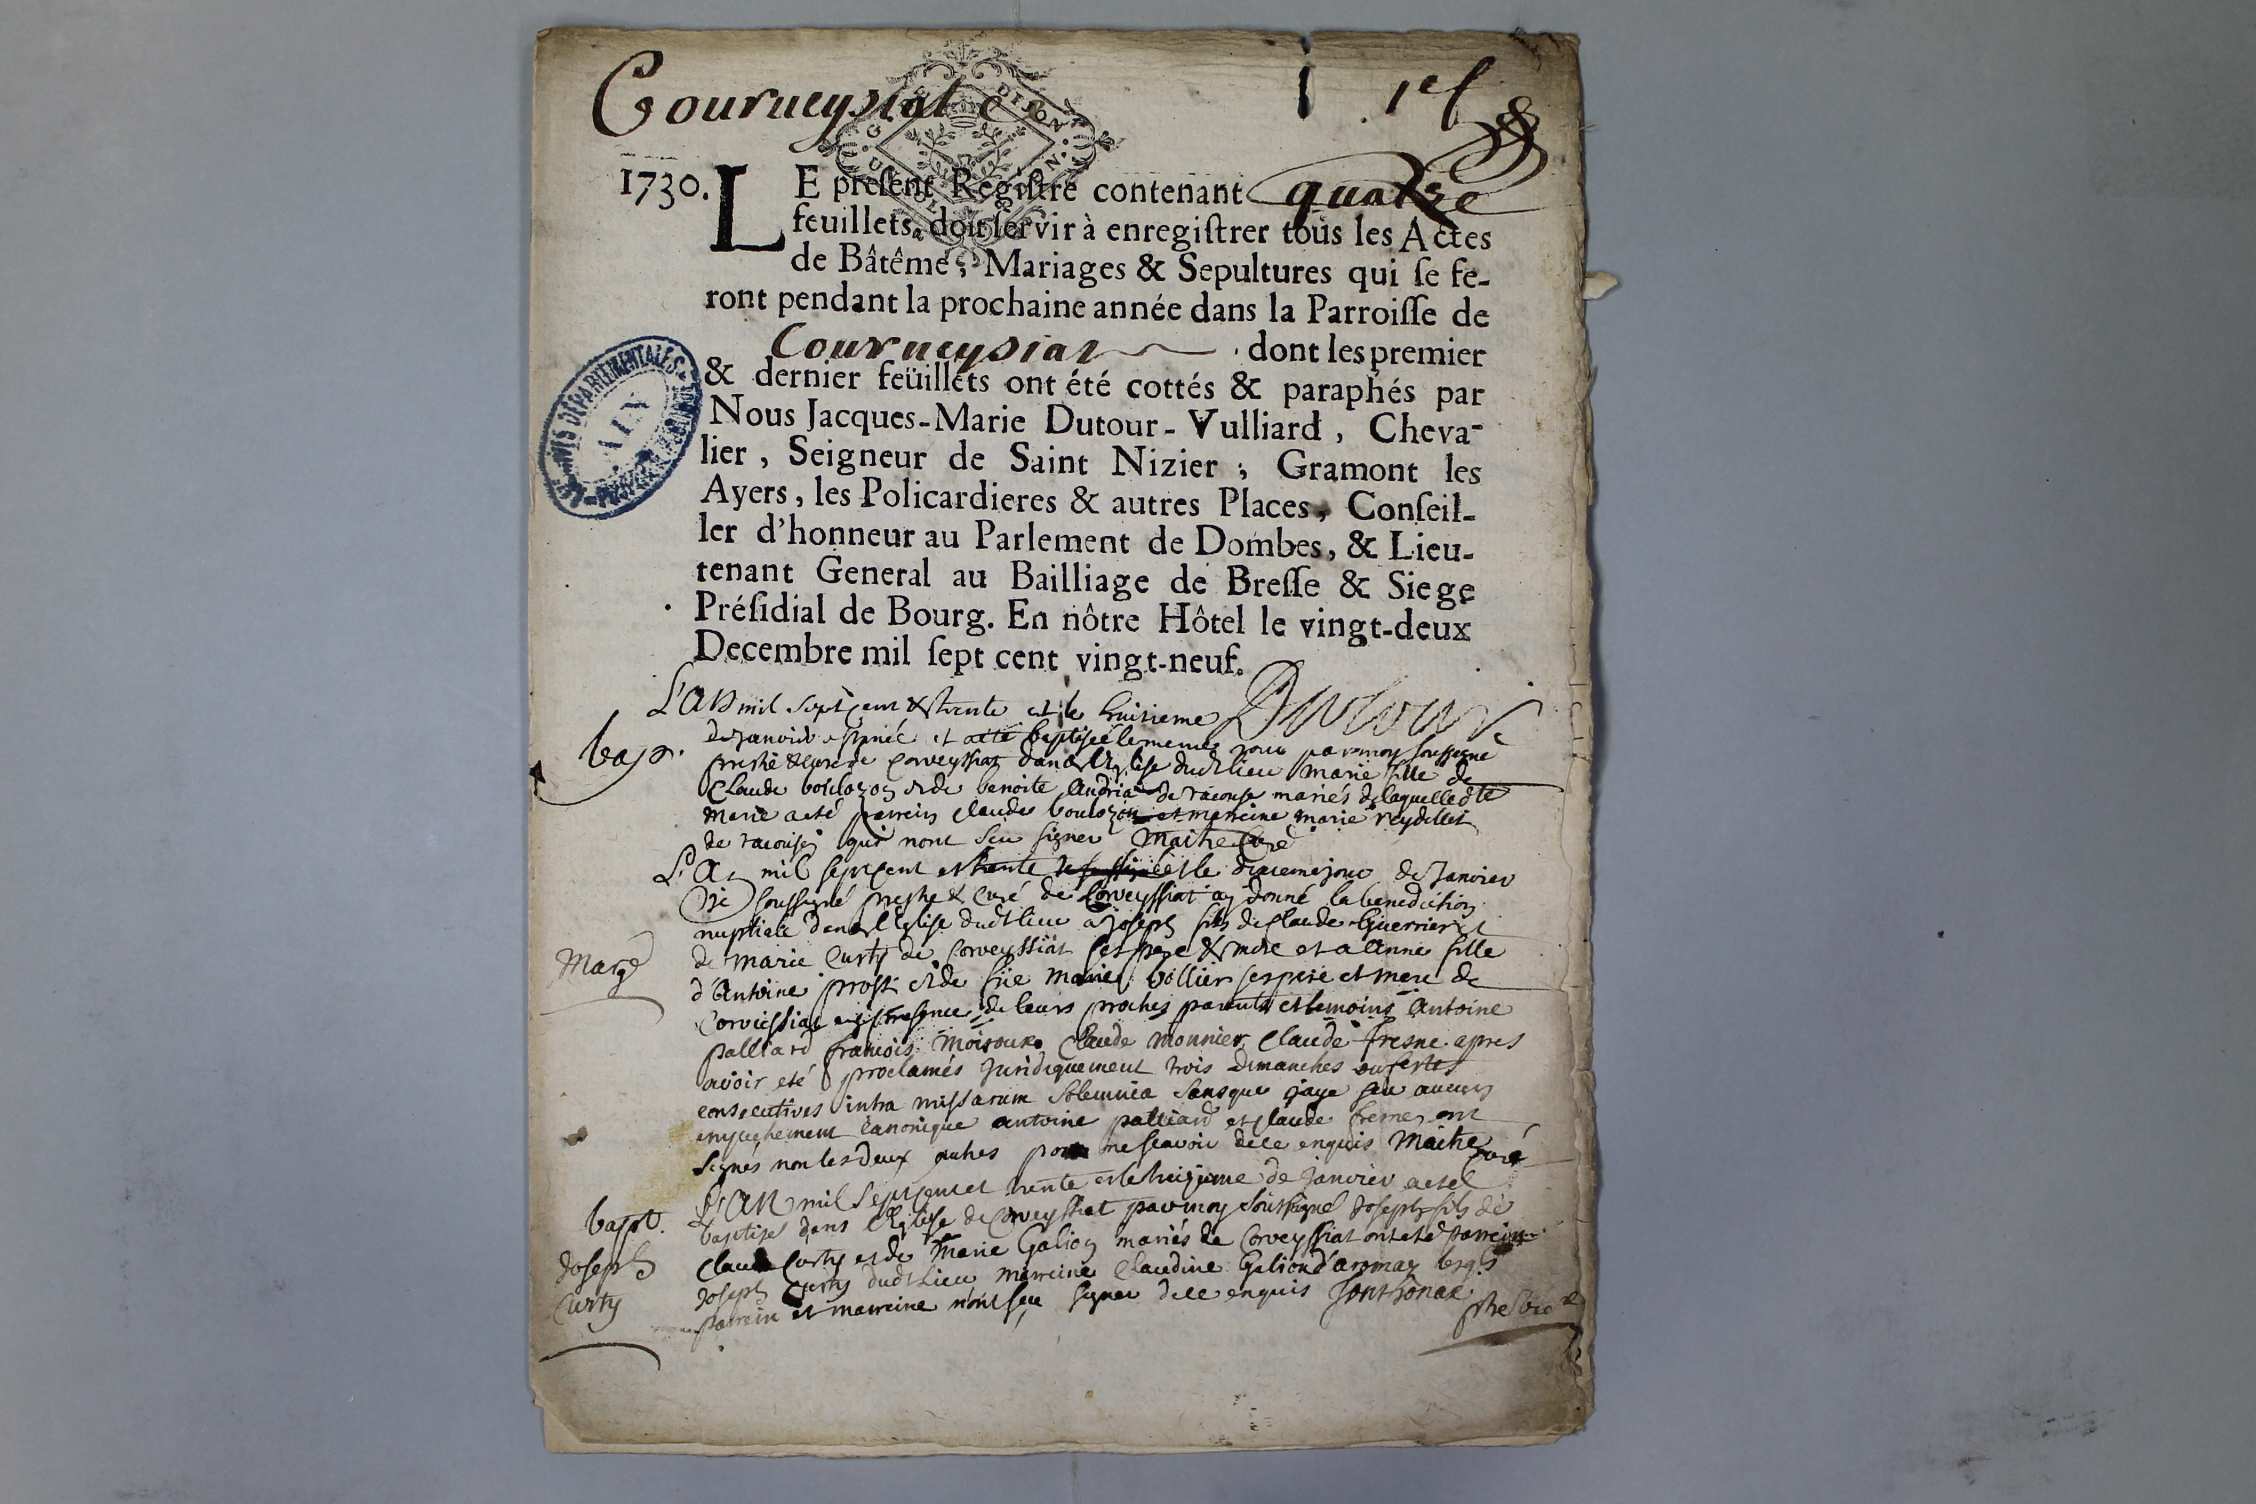 Courveyssiat
1 1er
DIJON
1730.
LE present Registre contenant quatre
feuillets, doit servir à enregistrer tous les Actes
de Bâtême, Mariages & Sepultures qui se fe-
ront pendant la prochaine année dans la Parroisse de
Courveyssiat dont les premier
& dernier feüillets ont été cottés & paraphés par
Nous Jacques-Marie Dutour-Vulliard, Cheva-
lier, Seigneur de Saint Nizier, Gramont les
Ayers, les Policardieres & autres Places, Conseil-
ler d'honneur au Parlement de Dombes, & Lieu-
tenant General au Bailliage de Bresse & Siege
Présidial de Bourg. En nôtre Hôtel le vingt-deux
Decembre mil sept cent vingt-neuf.
ARCHIVES DEPARTEMENTALES
AIN
Dutour
L'an mil sept cent & trente et le huitieme
bapt.
de Janvier est née et a eté baptisée le meme jour par moy soussigné
prestre & curé de Corveyssiat dans l'Eglise dudt lieu marie fille de
Claude bolozon et de benoite Andria de racouse mariés de laquelle dte
Marie a eté parrein claude boulozon et marreine marie reydellet
de racouse qui nont sceu signer Maitre Curé
L'an mil sept cent et trente et le dixieme jour de Janvier
Je soussigné prestre & curé de Corveyssiat ay donné la benediction
nuptiale dans l'Eglise dudt lieu a Joseph fils de Claude Guerrier et
de marie Curty de Corveyssiat ses pere & mere et a Anne fille
Marge
d'Antoine prost et de füe Marie Vollier ses pere et mere de
Corviessiat en presence de leurs proches parents et temoins Antoine
palliard francois Moisoux Claude Monnier Claude fresne apres
avoir eté proclamés Juridiquement trois dimanches ou festes
consecutives intra missarum solemnia sans que j'aye sceu aucun
empechement canonique antoine palliard et Claude frene ont
signés non les deux autres pour ne scavoir de ce enquis Maitre Curé
L'an mil sept cent et trente et le treizieme de janvier a eté
bapt.
baptisé dans l'Eglise de Corveyssiat par moy soussigné Joseph fils de
Joseph
Claude Curty et de Marie Galion mariés de Corveyssiat ont eté parrein
Curty
Joseph Curty dudt Lieu marreine Claudine Galion d'aromay lesqls
parrein et marreine n'ont sceu signer de ce enquis Jonthonax